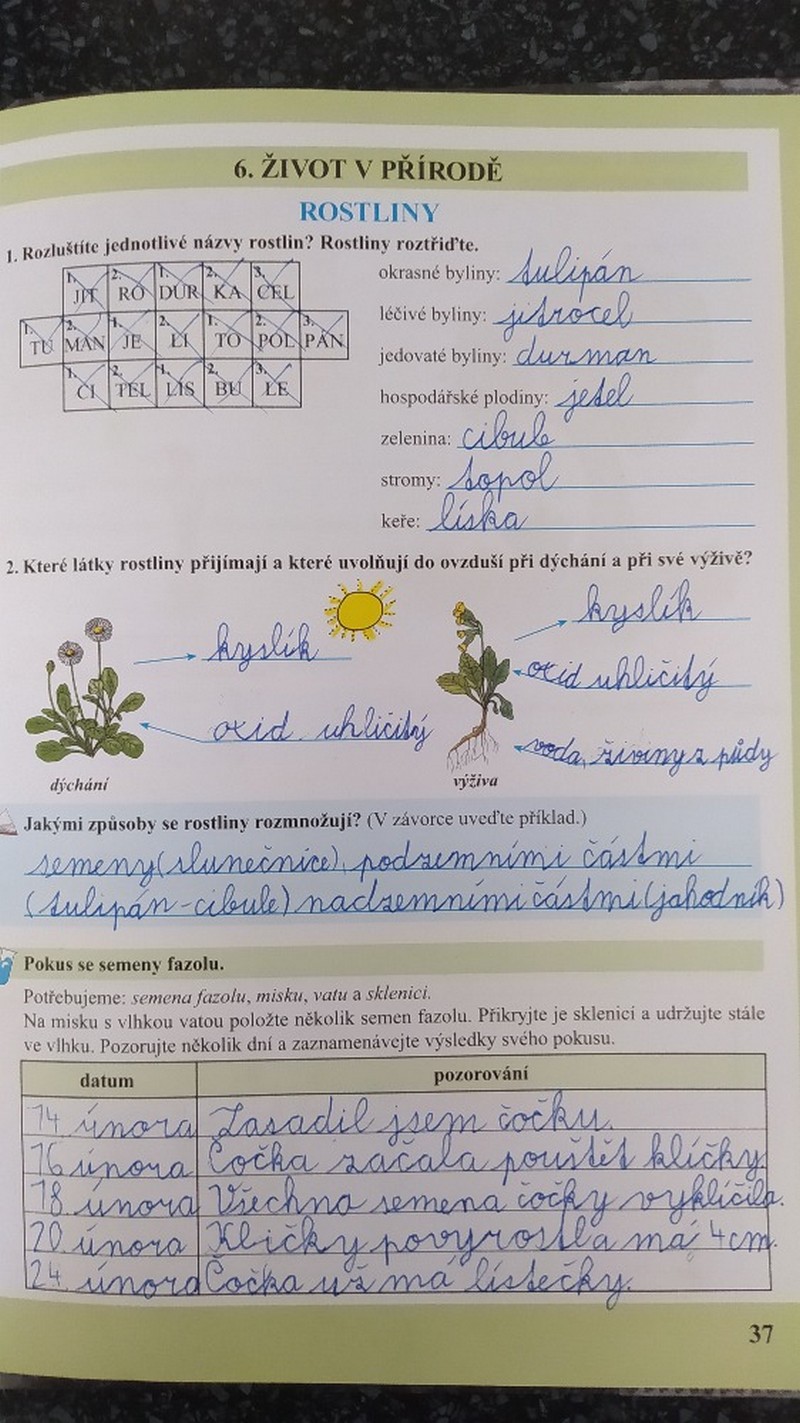 6. ŽIVOT V PŘÍRODĚ
ROSTLINY
1. Rozluštíte jednotlivé názvy rostlin? Rostliny roztřiďte.
1. JIT 2. RO 1. DUR 2. KA 3. CEL
1. TU 2. MAN 1. JE 2. LI 1. TO 2. POL 3. PÁN
1. CI 2. TEL 1. LÍS 2. BU 3. LE
okrasné byliny: tulipán
léčivé byliny: jitrocel
jedovaté byliny: durman
hospodářské plodiny: jetel
zelenina: cibule
stromy: topol
keře: líska
2. Které látky rostliny přijímají a které uvolňují do ovzduší při dýchání a při své výživě?
kyslík
oxid uhličitý
dýchání
kyslík
oxid uhličitý
voda, živiny z půdy
výživa
Jakými způsoby se rostliny rozmnožují? (V závorce uveďte příklad.)
semeny (slunečnice), podzemními částmi
(tulipán-cibule) nadzemními částmi (jahodník)
Pokus se semeny fazolu.
Potřebujeme: semena fazolu, misku, vatu a sklenici.
Na misku s vlhkou vatou položte několik semen fazolu. Přikryjte je sklenicí a udržujte stále
ve vlhku. Pozorujte několik dní a zaznamenávejte výsledky svého pokusu.
datum pozorování
14. února Zasadil jsem čočku.
16. února Čočka začala pouštět klíčky.
18. února Všechna semena čočky vyklíčila.
20. února Klíčky povyrostla má 4cm.
24. února Čočka už má lístečky.
37